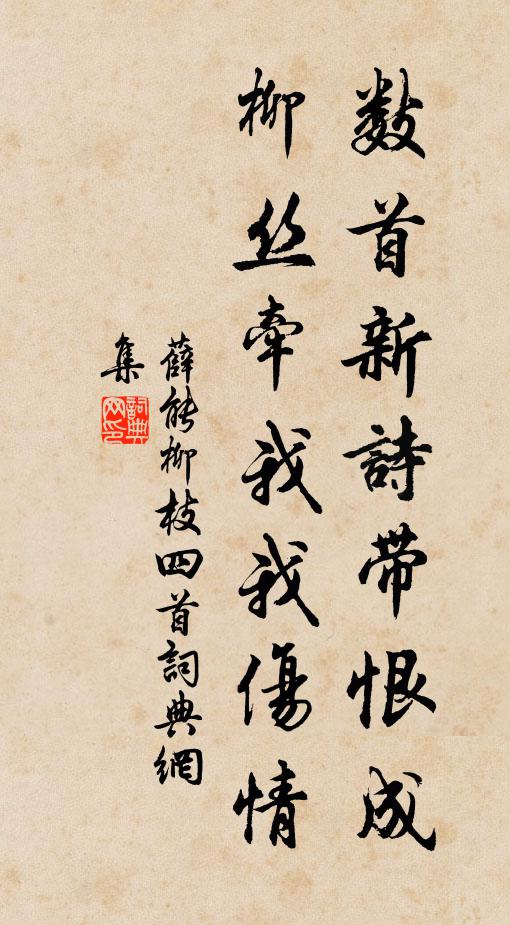 数首新詩帶恨成
柳丝牽我我傷情
薛能柳枝四首詞典網
集
詞典
网印